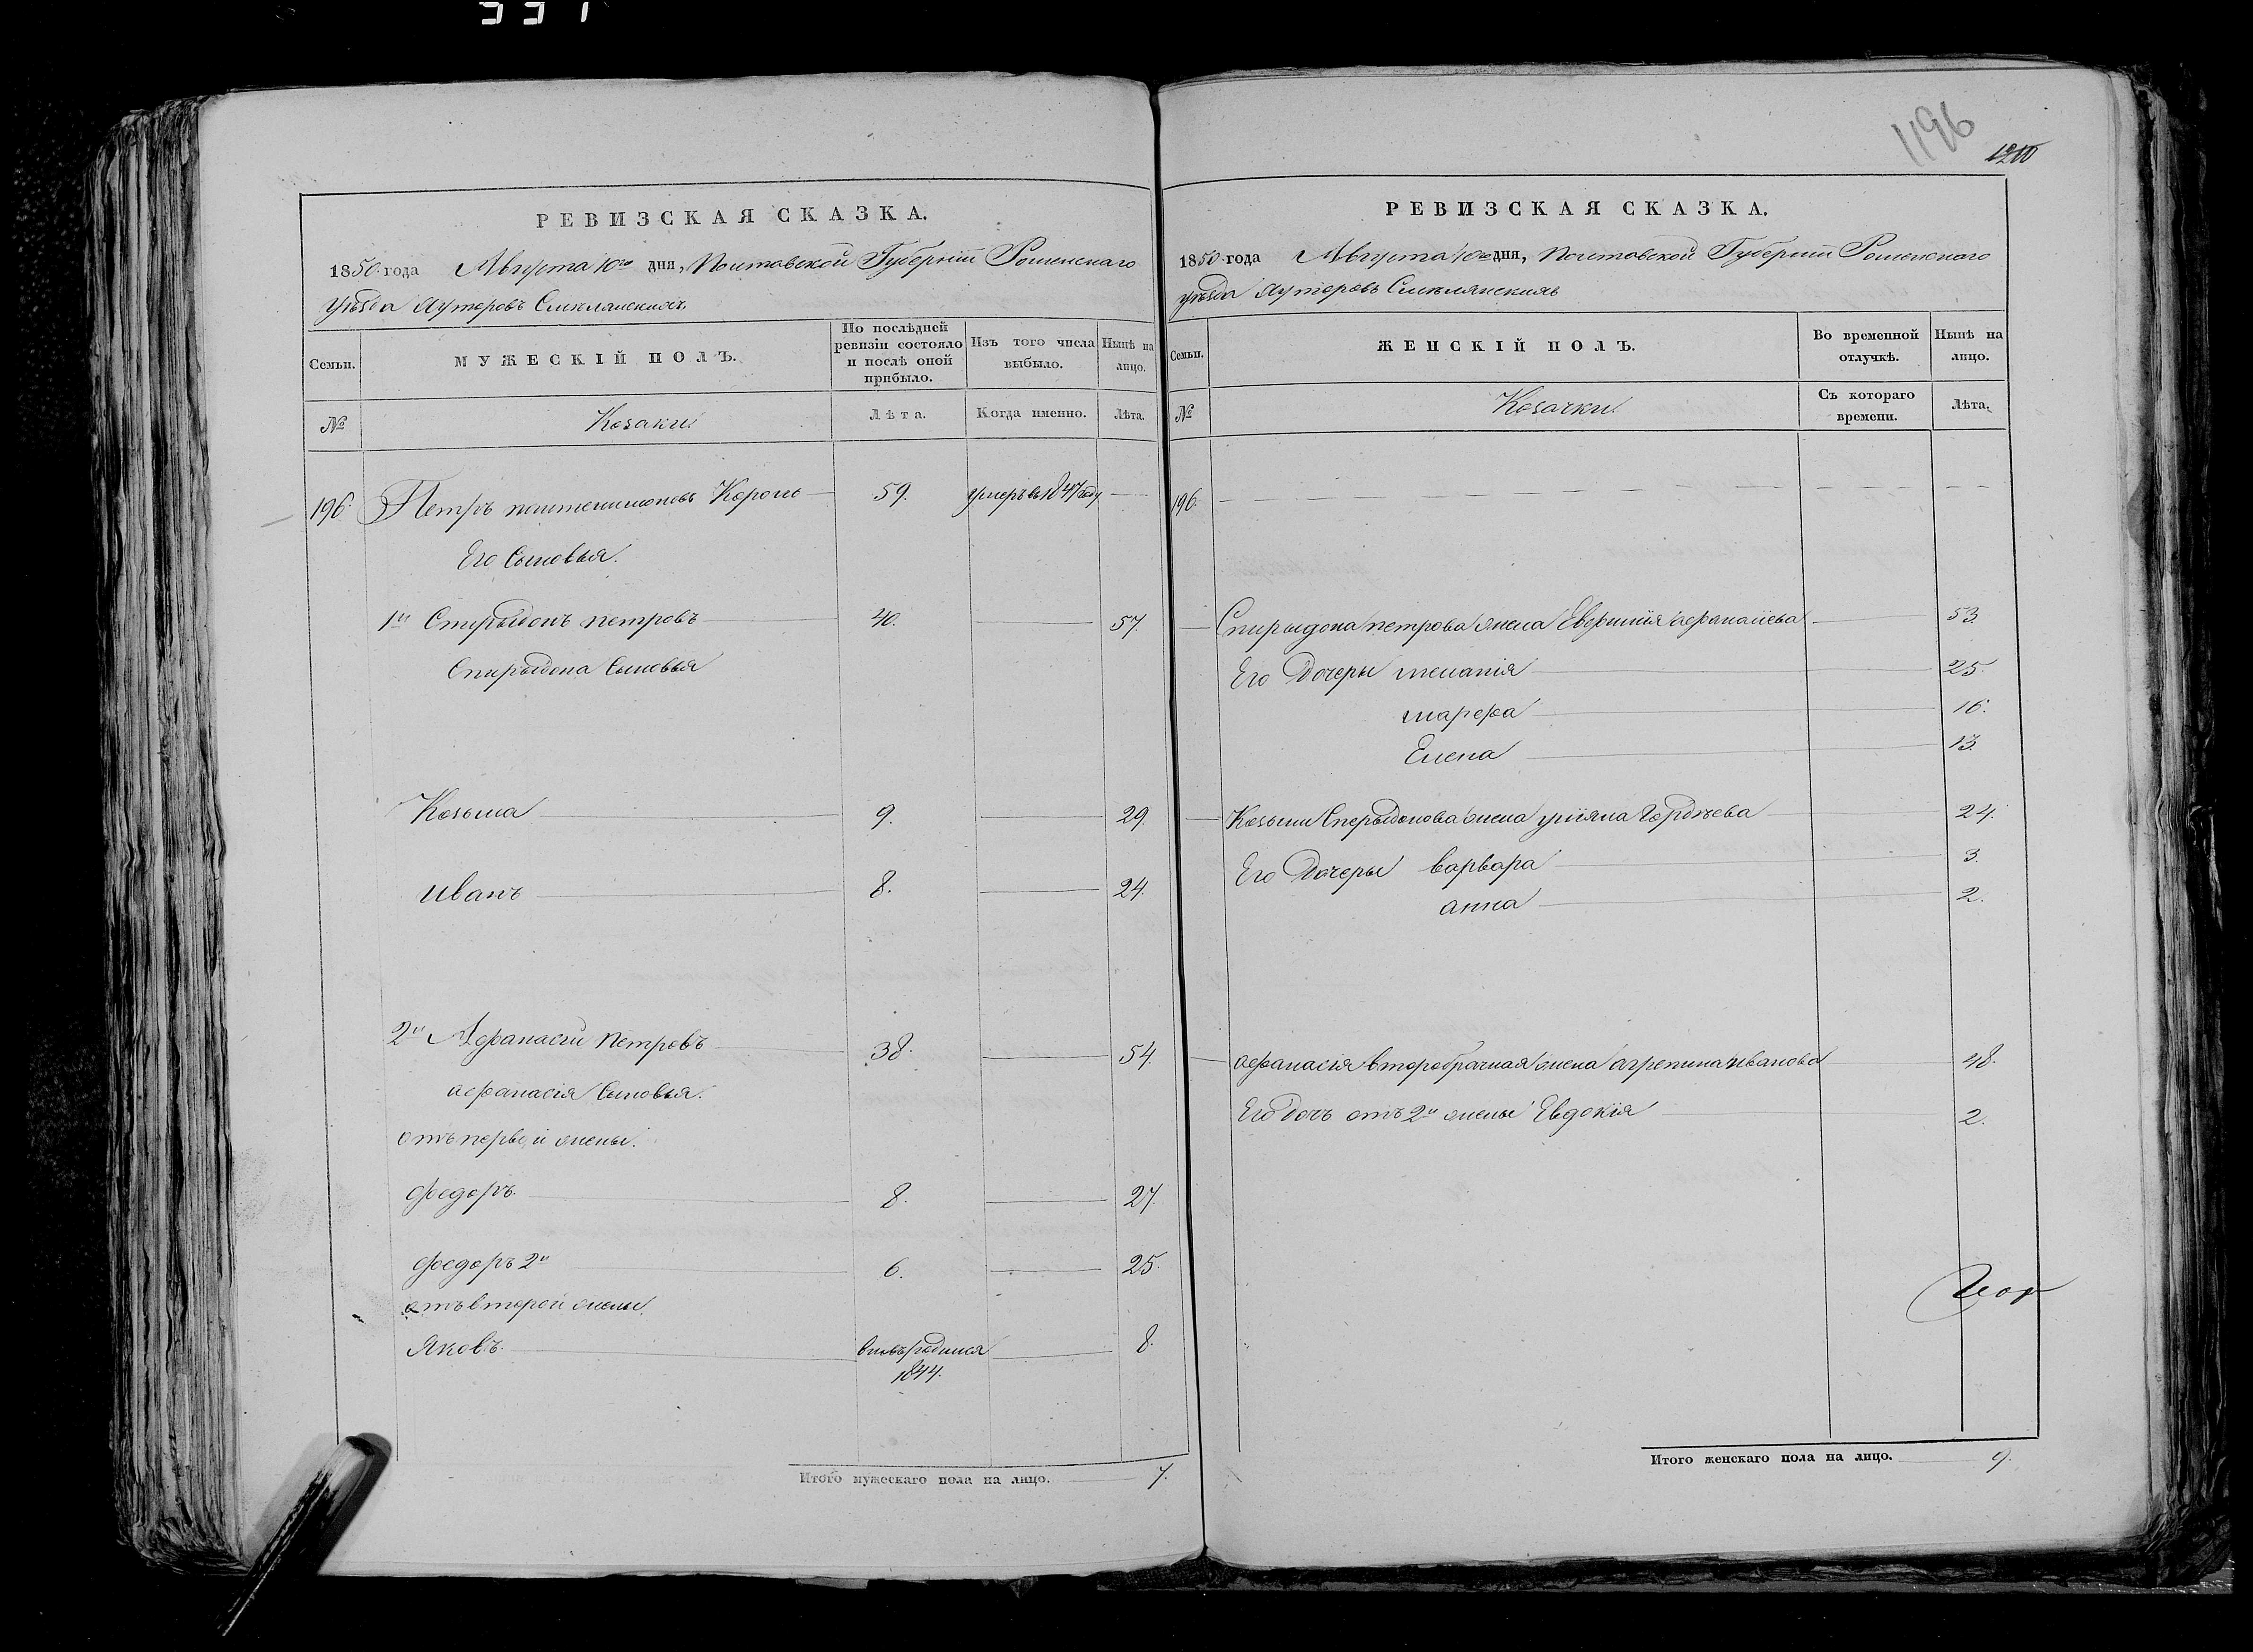 1196
1210
РЕВИЗСКАЯ СКАЗКА.
1850 года Августа 10го дня, Полтавской Губерніи Роменскаго
уѣзда хуторовъ Смѣлянскихъ
Семьи.
МУЖЕСКІЙ ПОЛЪ.
По послѣдней ревизіи состояло и послѣ оной прибыло.
Изъ того числа выбыло.
Нынѣ на лицо.
№
Козаки
Лѣта.
Когда именно.
Лѣта.
196. Петръ Король 59. умеръ въ 1847 году
Его Сыновья.
1й Спирыдонъ петровъ 40. 57.
Спирыдона Сыновья
Козьма 9. 29.
иванъ 8. 24.
2й Афанасій петровъ 38. 54.
афанасія Сыновья.
отъ первой жены.
федоръ. 8. 27.
федоръ 2й 6. 25.
отъ второй жены.
Яковъ. вновьродился 8.
1844.
Итого мужескаго пола на лицо. 7.
РЕВИЗСКАЯ СКАЗКА.
1850 года Августа 10го дня, Полтавской Губерніи Роменскаго
уѣзда хуторовъ Смѣлянскихъ
Семьи.
ЖЕНСКІЙ ПОЛЪ.
Во временной отлучкѣ.
Нынѣ на лицо.
№
Козачки
Съ котораго времени.
Лѣта.
196.
Спирыдона петрова жена афанасіева 53.
Его Дочеры меланія 25.
марфа 16.
Елена 13.
Козьмы Спирыдонова жена уліяна Гордѣева 24.
Его Дочеры варвара 3.
анна 2.
афанасія второбрачная жена агрепина иванова 48.
Его дочь отъ 2й жены Евдокія 2.
Итого женскаго пола на лицо. 9.